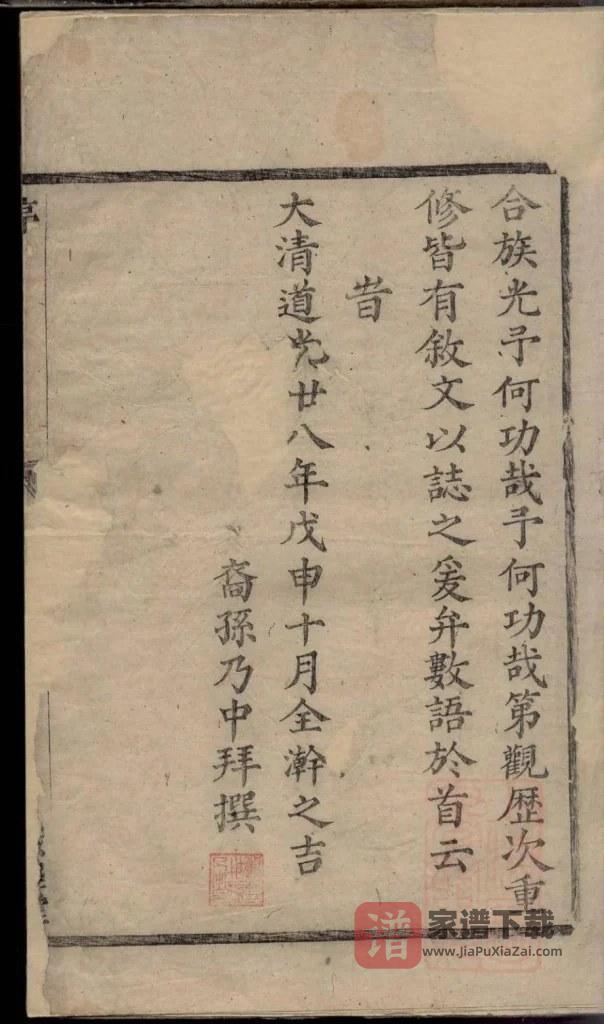 合族光予何功哉予何功哉第觀歷次重
修皆有敘文以誌之爰弁數語於首云
旹
大清道光廿八年戊申十月全澣之吉
裔孫乃中拜撰
谱
家谱下载
www.JiaPuXiaZai.com